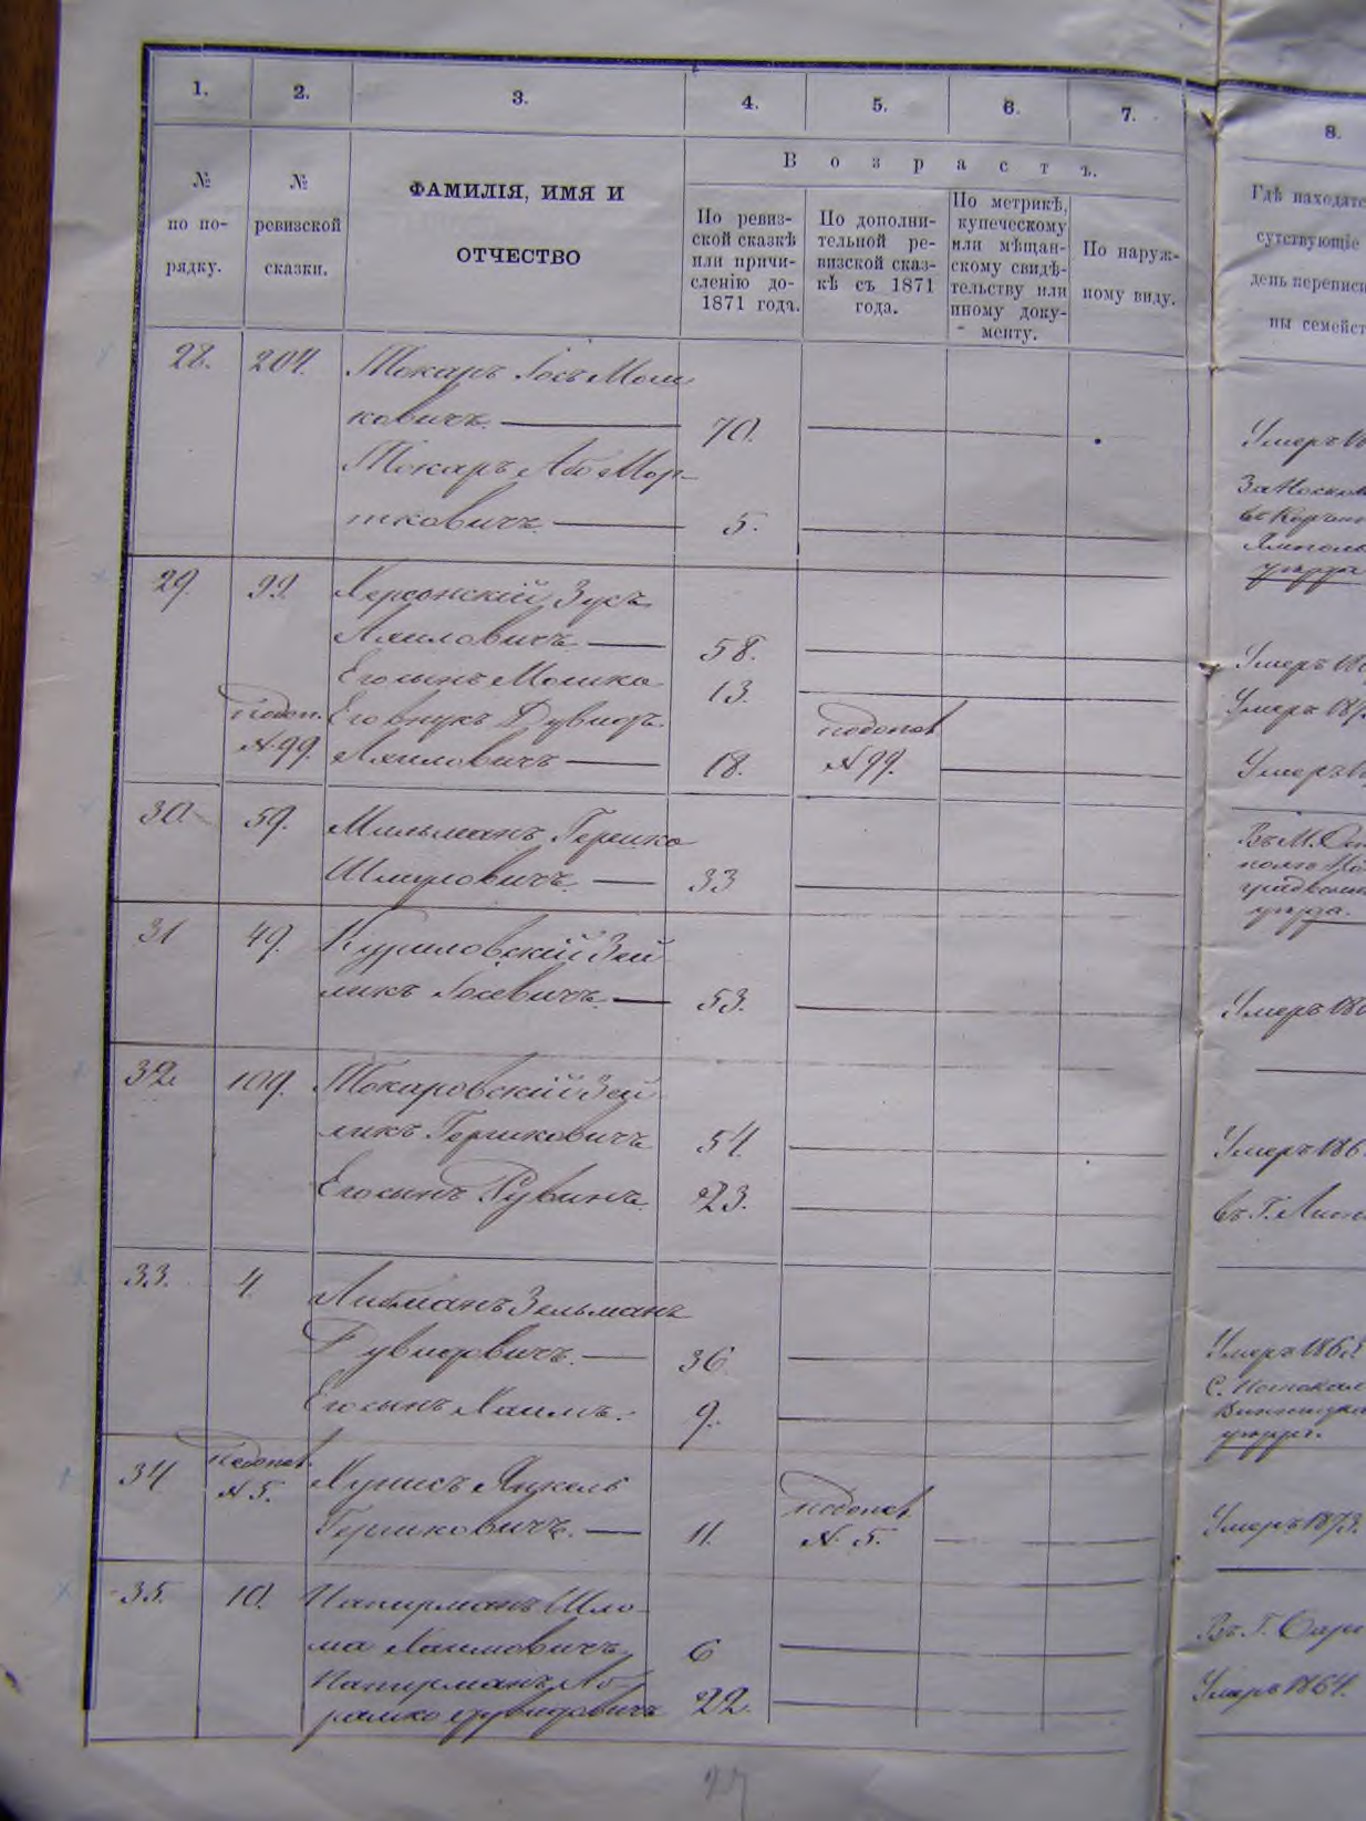 1. 2. 3. 4. 5. 6. 7. 8.
№
по по-
рядку.
№
ревизской
сказки.
ФАМИЛІЯ, ИМЯ И
ОТЧЕСТВО
В о з р а с т ъ.
По ревиз-
ской сказкѣ
или причи-
сленію до
1871 года.
По дополни-
тельной ре-
визской сказ-
кѣ съ 1871
года.
По метрикѣ,
купеческому
или мѣщан-
скому свидѣ-
тельству или
иному доку-
менту.
По наруж-
ному виду.
Гдѣ находятс
сутствующіе
день переписи
ны семейст
28. 204. Токарь Іось Мош
ковичъ 70. Умеръ 18
Токарь Або Мор-
тковичъ 5.
уѣзда
29. 99. Херсонскій Зусь
Хаиловичъ 58. Умеръ 18
Его сынъ Мошко 13. Умеръ 18
Его внукъ Дувидъ
№ 99. Хаиловичъ 18. № 99. Умеръ
30. 59. Мильманъ Гершко
Шмуловичъ 33
уѣзда.
31 49. Куриловскій Зей
ликъ Іосевичъ 53. Умеръ 18
32. 109. Токаровскій Зей
ликъ Гершковичъ 54. Умеръ 186
Его сынъ Рувинъ 23. въ Г.
33. 4. Либманъ Зельманъ
Дувидовичъ 36 Умеръ 186
Его сынъ Хаимъ. 9. С.
уѣзда.
34 № 5. Хунисъ Янкель
Гершковичъ. 11. № 5. Умеръ 1873.
35. 10. Папирманъ Шло-
ма Хаимовичъ 6 Въ Г.
Папирманъ Аб-
рамко Дувидовичъ 22. Умеръ 1864.